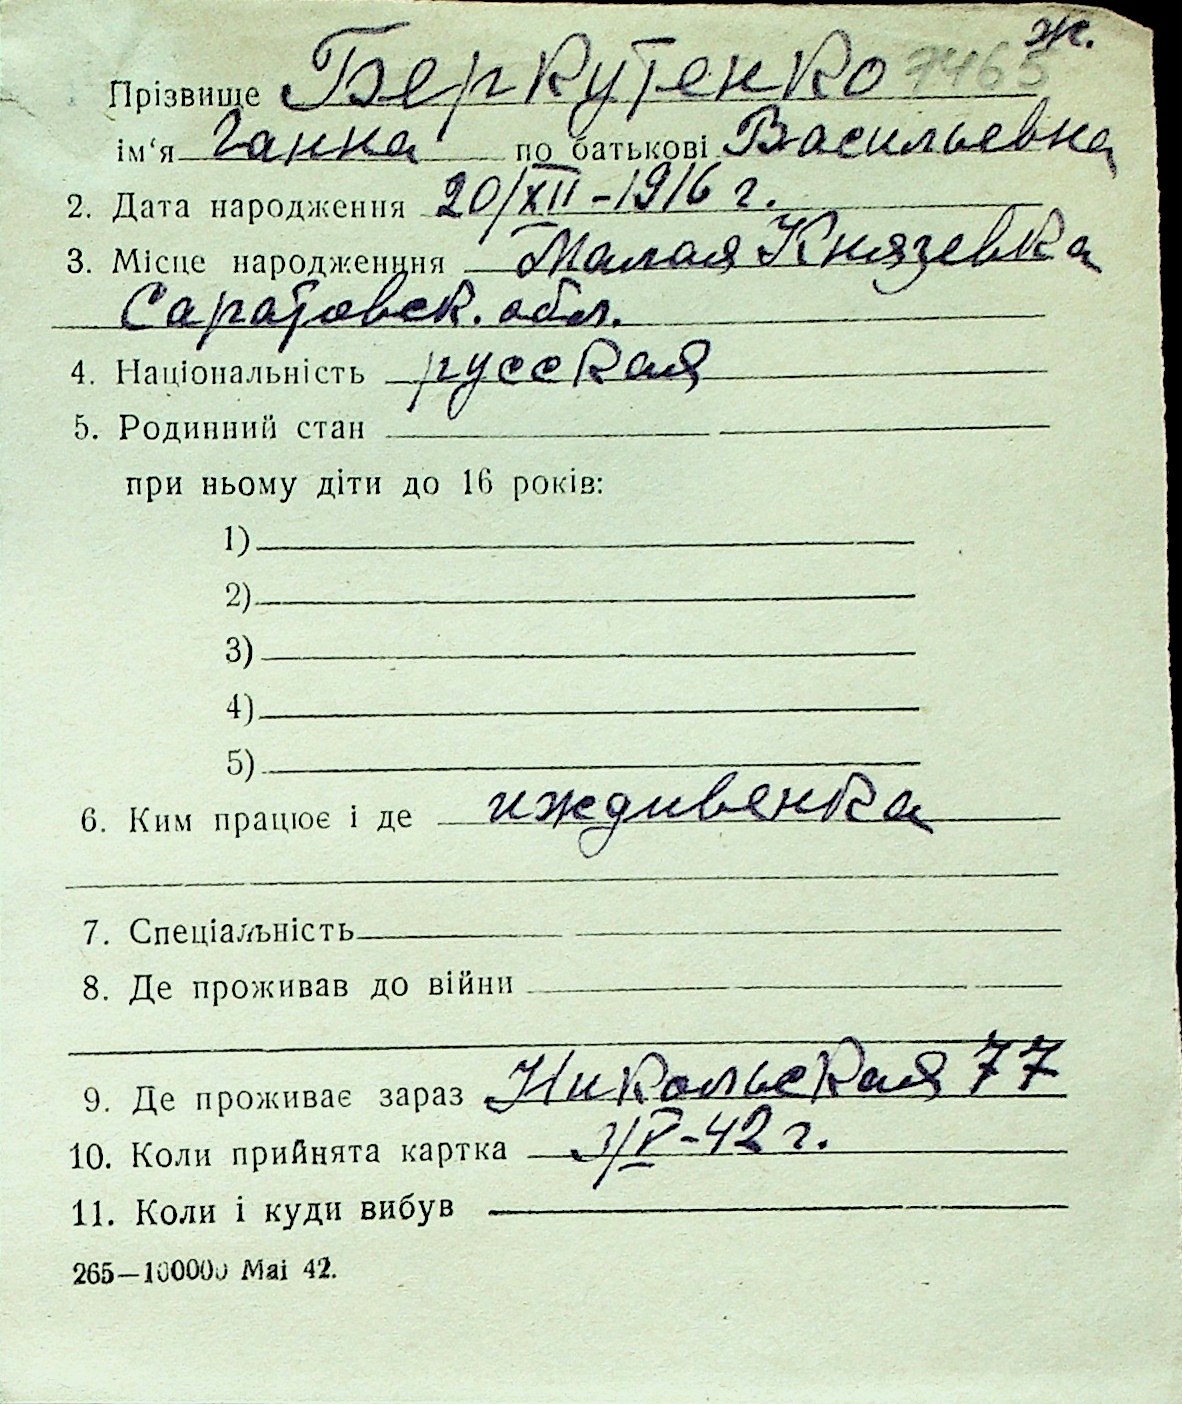 ж.
Прізвище Беркутенко 7465
ім'я Ганна по батькові Васильевна
2. Дата народження 20/XII-1916 г.
3. Місце народженння Малая Князевка
Саратовск. обл.
4. Національність русская
5. Родинний стан
при ньому діти до 16 років:
1)
2)
3)
4)
5)
6. Ким працює і де иждивенка
7. Спеціальність
8. Де проживав до війни
9. Де проживає зараз Никольская 77
10. Коли прийнята картка 3/V-42 г.
11. Коли і куди вибув
265—100000 Маі 42.